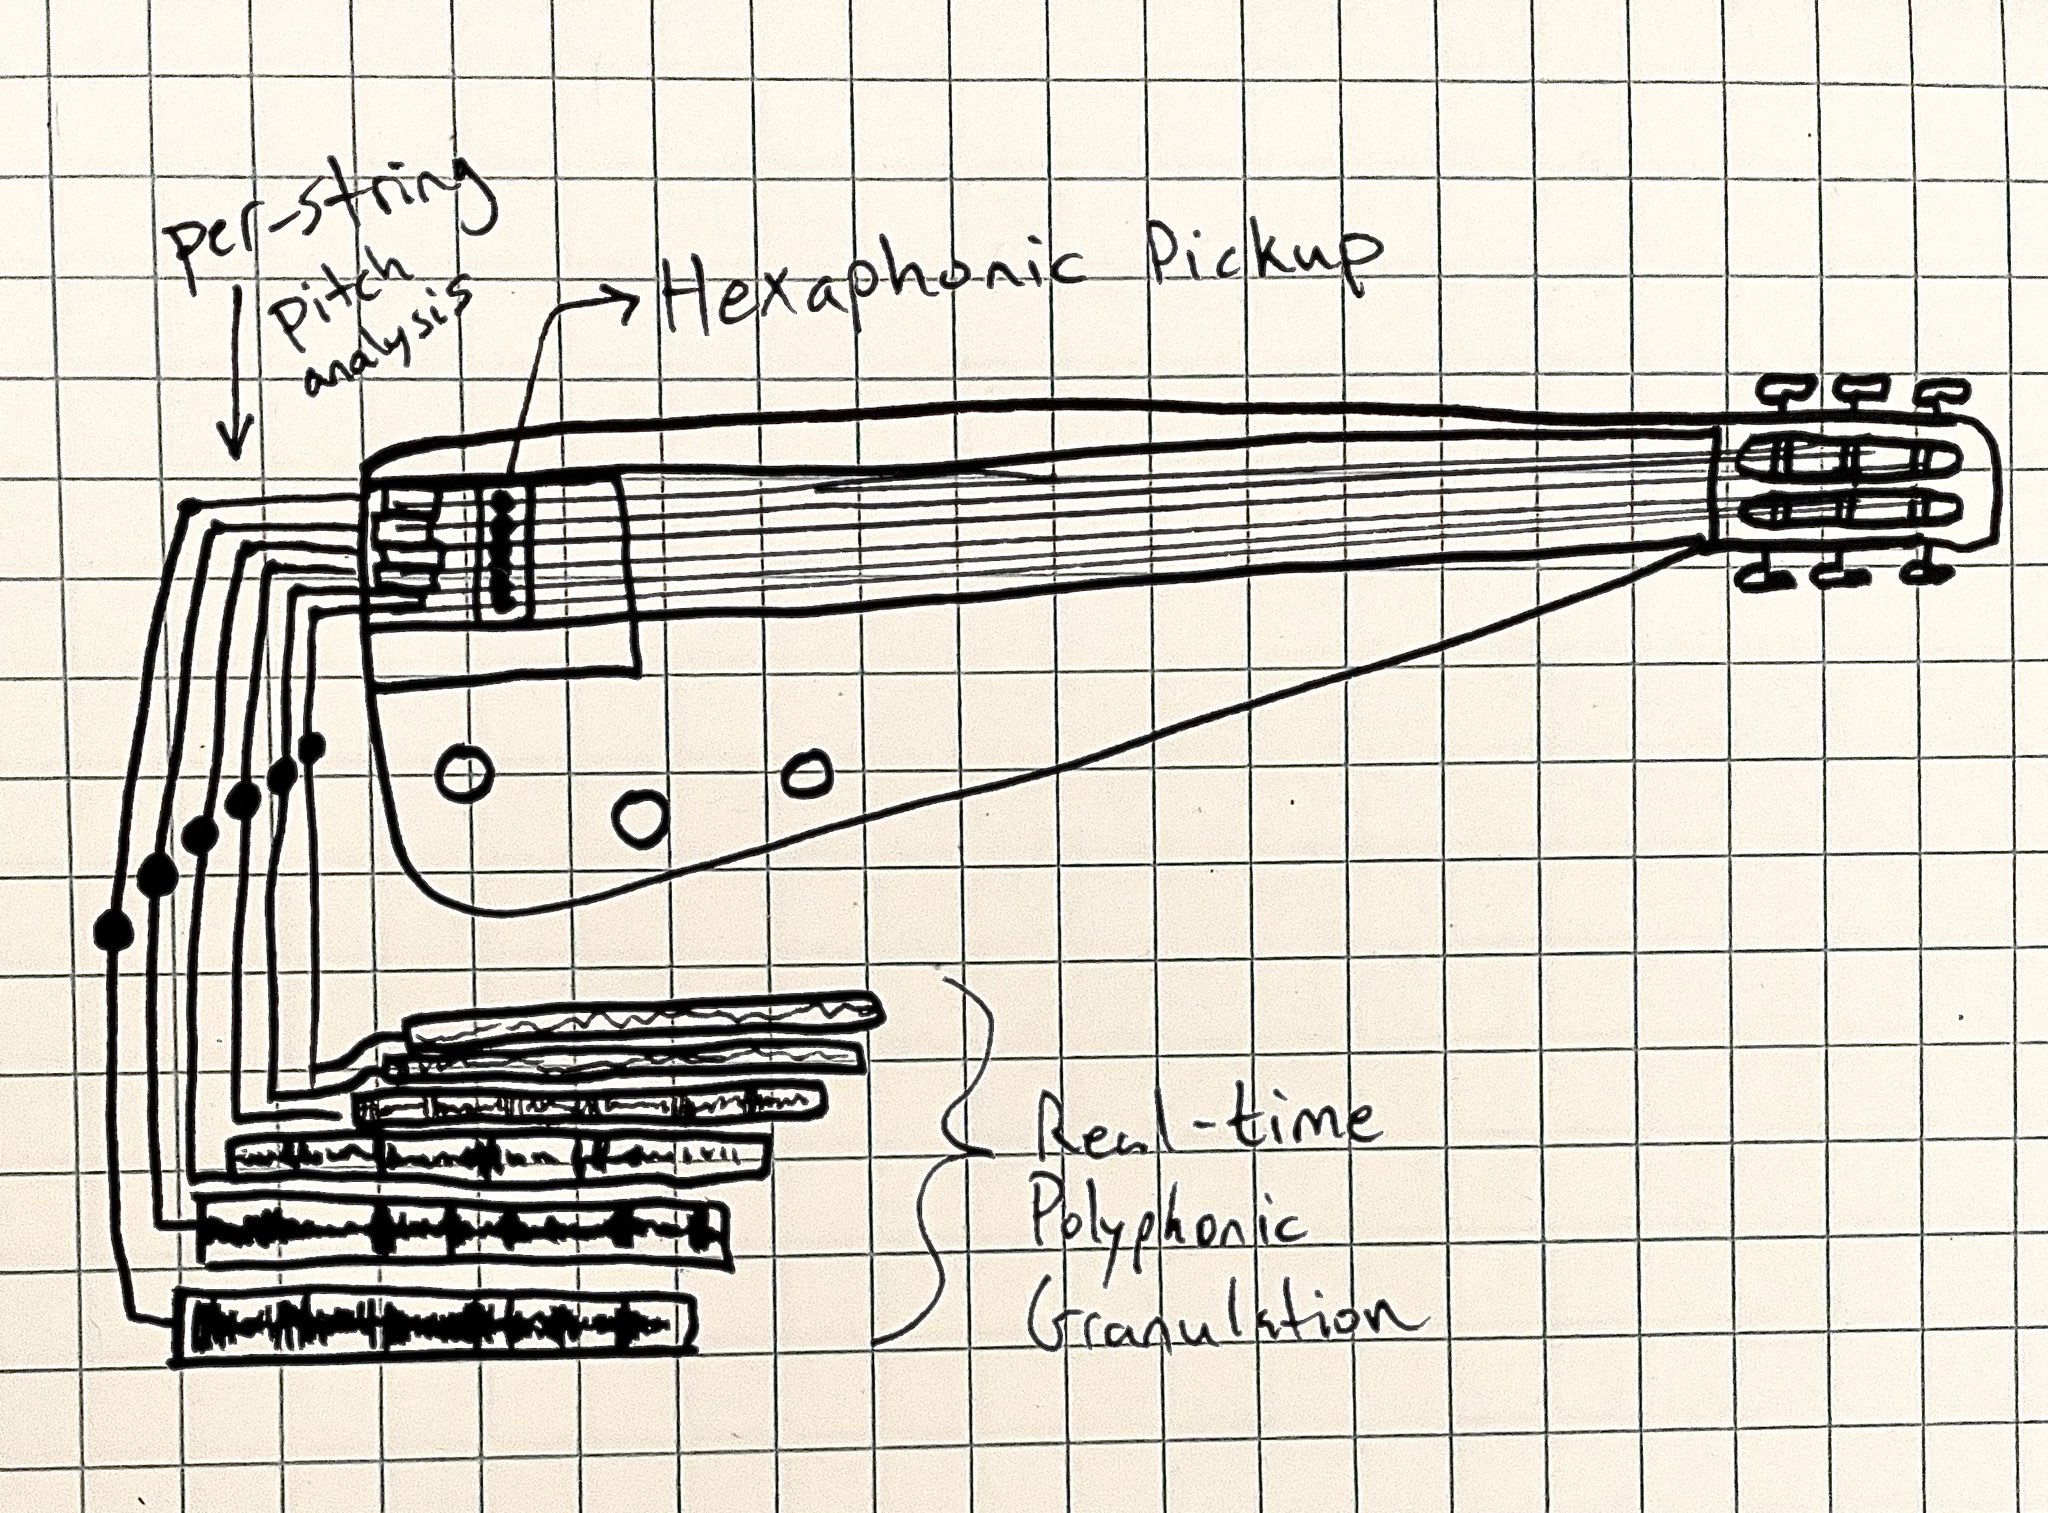 per-string
pitch
analysis
Hexaphonic Pickup
Real-time
Polyphonic
Granulation